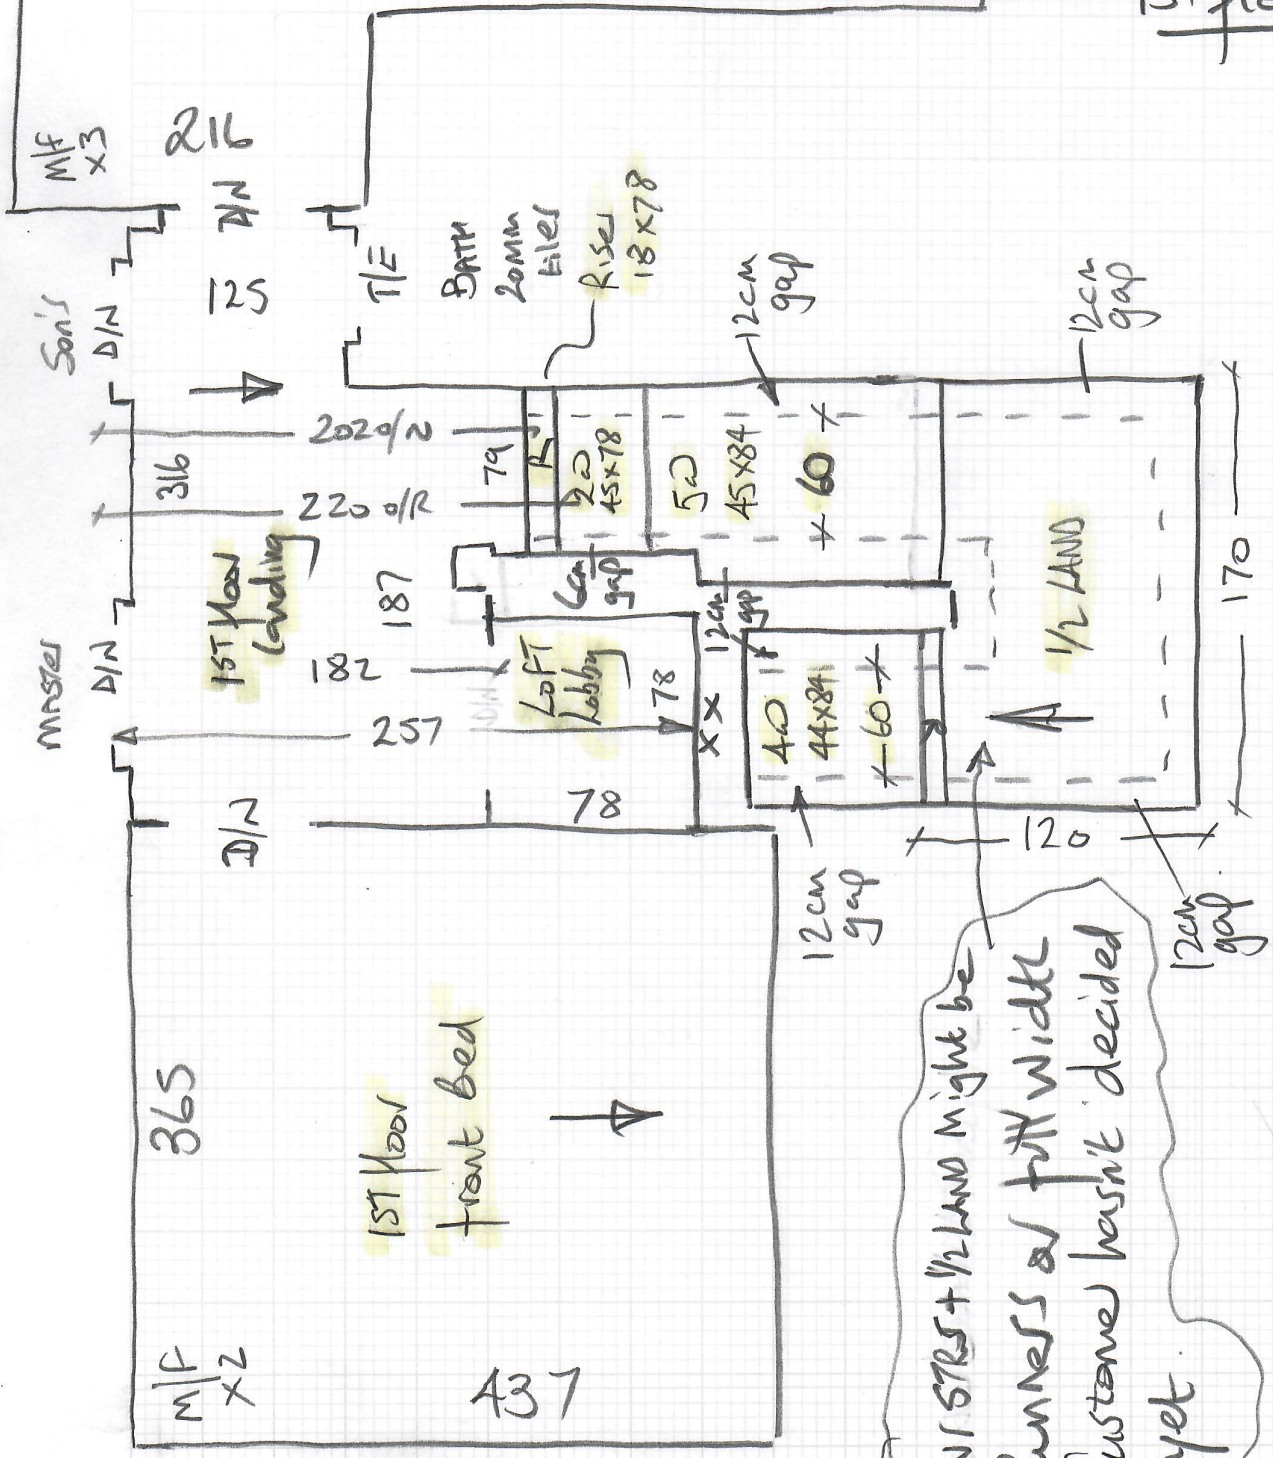 M/F
x3
216
D/N
Son's
D/N
125
T/E
BATH
20MM
tiles
Riser
18x78
12cm
gap
12cm
gap
316
2020/N
79
R
220 O/R
2W
45x78
5W
45x84
60
1/2 LAND
170
1ST floor
Landing
187
6cm
gap
12cm
gap
MASTER
D/N
182
LOFT
Lobby
78
XX
257
D/N
4W
44x84
60
R
D/N
78
120
12cm
gap
12cm
gap
365
1ST floor
front Bed
M/F
x2
437
STRS + 1/2 LAND Might be
or full width
customer hasn't decided
yet